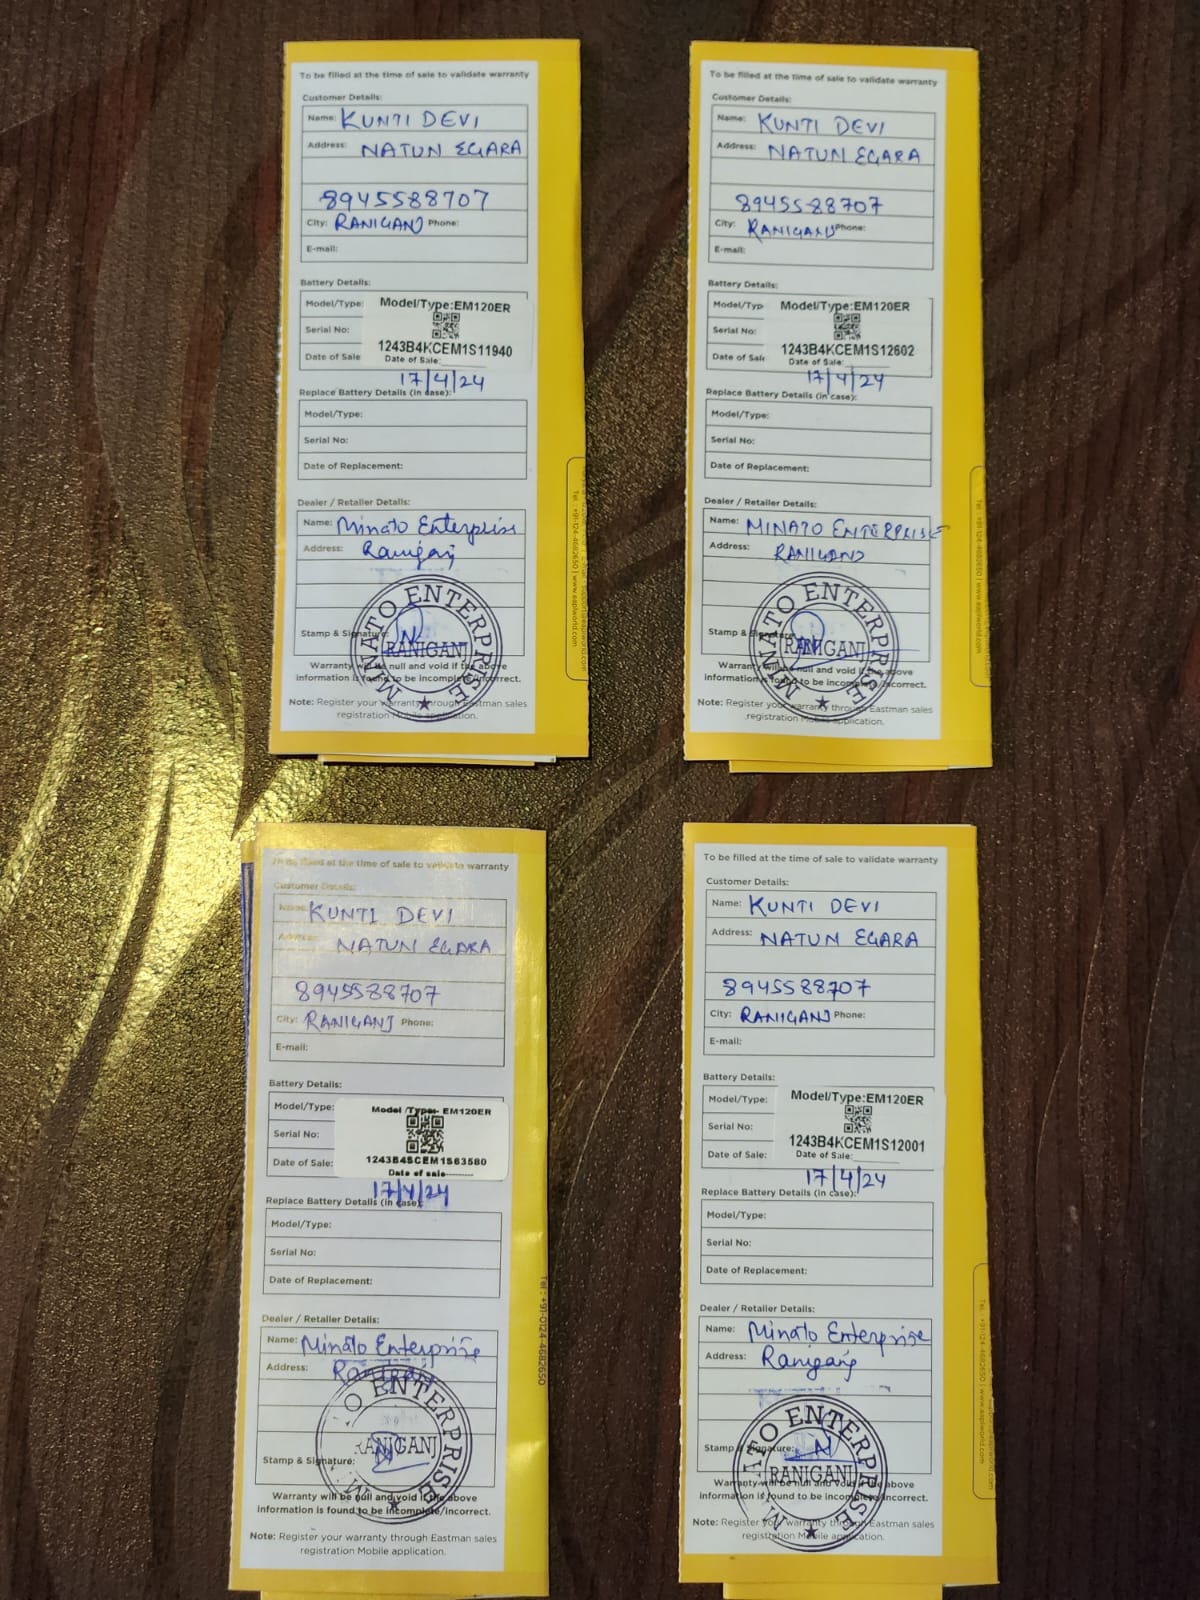 To be filled at the time of sale to validate warranty
Customer Details:
Name: KUNTI DEVI
Address: NATUN EGARA
8945588707
City: RANIGANJ Phone:
E-mail:
Battery Details:
Model/Type: Model/Type:EM120ER
Serial No:
1243B4KCEM1S11940
Date of Sale Date of Sale:
17/4/24
Replace Battery Details (in case):
Model/Type:
Serial No:
Date of Replacement:
Dealer / Retailer Details:
Name: Minato Enterprise
Address: Raniganj
MINATO ENTERPRISE
RANIGANJ
Stamp & Signature:
Warranty will be null and void if the above
information is found to be incomplete/incorrect.
Note: Register your warranty through Eastman sales
registration Mobile application.
Tel: +91-124-4682650 | www.eaplworld.com
To be filled at the time of sale to validate warranty
Customer Details:
Name: KUNTI DEVI
Address: NATUN EGARA
8945588707
City: RANIGANJ Phone:
E-mail:
Battery Details:
Model/Typ Model/Type:EM120ER
Serial No:
1243B4KCEM1S12602
Date of Sale Date of Sale:
17/4/24
Replace Battery Details (in case):
Model/Type:
Serial No:
Date of Replacement:
Dealer / Retailer Details:
Name: MINATO ENTERPRISE
Address: RANIGANJ
MINATO ENTERPRISE
RANIGANJ
Stamp & Signature:
Warranty will be null and void if the above
information is found to be incomplete/incorrect.
Note: Register your warranty through Eastman sales
registration Mobile application.
Tel: +91-124-4682650 | www.eaplworld.com
To be filled at the time of sale to validate warranty
Customer Details:
Name: KUNTI DEVI
Address: NATUN EGARA
8945588707
City: RANIGANJ Phone:
E-mail:
Battery Details:
Model/Type: Model /Type:- EM120ER
Serial No:
1243B4SCEM1S63580
Date of Sale: Date of sale
17/4/24
Replace Battery Details (in case):
Model/Type:
Serial No:
Date of Replacement:
Dealer / Retailer Details:
Name: Minato Enterprise
Address: Raniganj
MINATO ENTERPRISE
RANIGANJ
Stamp & Signature:
Warranty will be null and void if the above
information is found to be incomplete/incorrect.
Note: Register your warranty through Eastman sales
registration Mobile application.
Tel: +91-0124-4682650
To be filled at the time of sale to validate warranty
Customer Details:
Name: KUNTI DEVI
Address: NATUN EGARA
8945588707
City: RANIGANJ Phone:
E-mail:
Battery Details:
Model/Type: Model/Type:EM120ER
Serial No:
1243B4KCEM1S12001
Date of Sale: Date of Sale:
17/4/24
Replace Battery Details (in case):
Model/Type:
Serial No:
Date of Replacement:
Dealer / Retailer Details:
Name: Minato Enterprise
Address: Raniganj
MINATO ENTERPRISE
RANIGANJ
Stamp & Signature:
Warranty will be null and void if the above
information is found to be incomplete/incorrect.
Note: Register your warranty through Eastman sales
registration Mobile application.
Tel: +91-124-4682650 | www.eaplworld.com